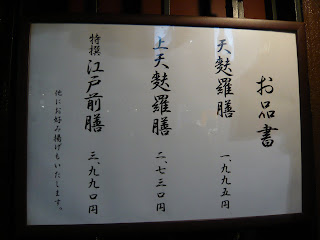 お品書
天麩羅膳 一、九九五円
上天麩羅膳 二、七三〇円
特撰 江戸前膳 三、九九〇円
他にお好み揚げもいたします。